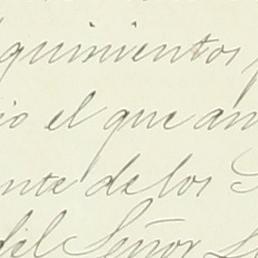 quinientos
io el que an
ente de los S
del Señor